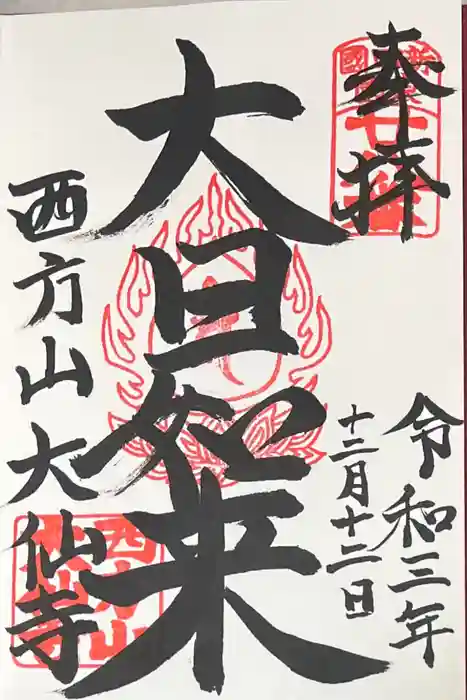 奉拝
令和三年
十二月十二日
大日如来
西方山大仙寺
西方山